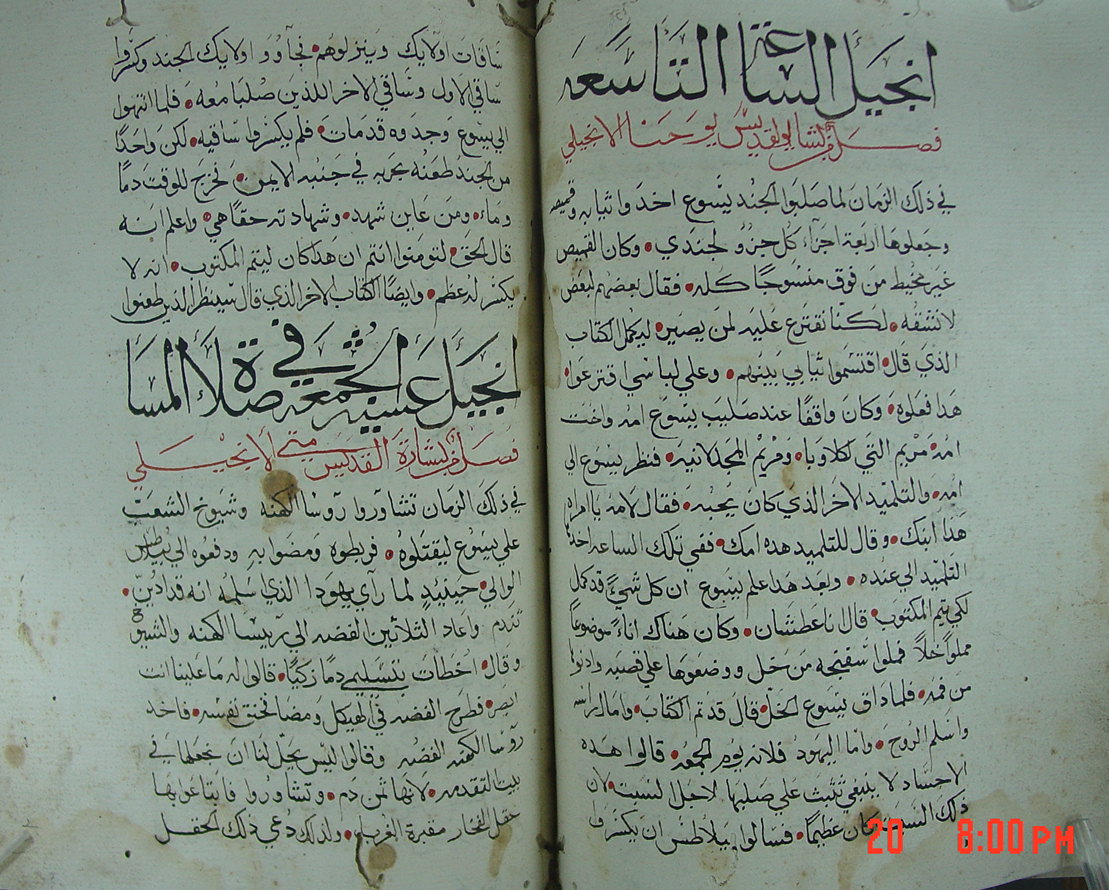 انجيل الساعة التاسعه
فصل من بشارة القديس يوحنا الانجيلي
في ذلك الزمان لما صلبوا الجند يسوع اخدوا ثيابه وقميصه
وجعلوها اربعة اجزاء كل جزو لجندي • وكان القميص
غير مخيط من فوق منسوجًا كله • فقال بعضهم لبعض
لا نشقه • لكننا نقترع عليه لمن يصير • ليكمل الكتاب
الذي قال • اقتسموا ثيابي بينهم • وعلي لباسي اقترعوا
هدا فعلوه • وكان واقفًا عند صليب يسوع امه واخت
امه • مريم التي لكلاوبا • ومريم المجدلانيه • فنظر يسوع الي
امه • والتلميد الاخر الذي كان يحبه • فقال لامه يا امراه
هدا ابنك • وقال للتلميد هده امك • ففي تلك الساعه اخدها
التلميد الي عنده • وبعد هدا علم يسوع ان كل شي قد كمل
لكي يتم المكتوب • قال انا عطشان • وكان هناك اناءً موضوعاً
مملواً خلاً فملوا سفنجه من خل ووضعوها علي قصبه وادنوها
من فمه • فلما داق يسوع الخل • قال قد تم الكتاب • وامال راسه
واسلم الروح • واما اليهود فلانه يوم الجمعه • قالوا هده
الاجساد لا ينبغي تثبت علي صلبها لاجل السبت • لان
ذلك السبت كان عظيماً • فسالوا بيلاطس ان يكسروا
ساقات اولايك وينزلوهم • فجاووا اولايك الجند وكسروا
ساقي الاول وساقي الاخر اللذين صلبا معه • فلما انتهوا
الي يسوع وجدوه قد مات • فلم يكسروا ساقيه • لكن واحدًا
من الجند طعنه بحربه في جنبه الايمن • فخرج للوقت دمًا
وماء • ومن عاين شهد • وشهادته حقًا هي • واعلم انه
قال الحق • لتومنوا انتم ان هدا كان ليتم المكتوب • انه لا
يكسر له عظم • وايضًا الكتاب الاخر الذي قال سينظر الذين طعنوا
انجيل عشية الجمعه في صلاة المسا
فصل من بشارة القديس متى الانجيلي
في ذلك الزمان تشاوروا روسا الكهنه وشيوخ الشعب
علي يسوع ليقتلوه • فربطوه ومضوا به ودفعوه الي بيلاطس
الوالي • حينيدٍ لما راي يهودا الذي سلمه انه قد ادين •
تندم واعاد الثلاثين الفضه الي ريسا الكهنه والشيوخ
وقال • اخطات بتسليمي دمًا زكيًا • قالوا له ما علينا انت
ابصر • فطرح الفضه في الهيكل ومضا فخنق نفسه • فاخد
روسا الكهنه الفضه وقالوا ليس يحل لنا ان نجعلها في
بيت التقدمه • لانها ثمن دم • وتشاوروا فابتاعو بها
حقل الفخار مقبرة الغربا • ولدلك دعي ذلك الحقل
20 8:00 PM